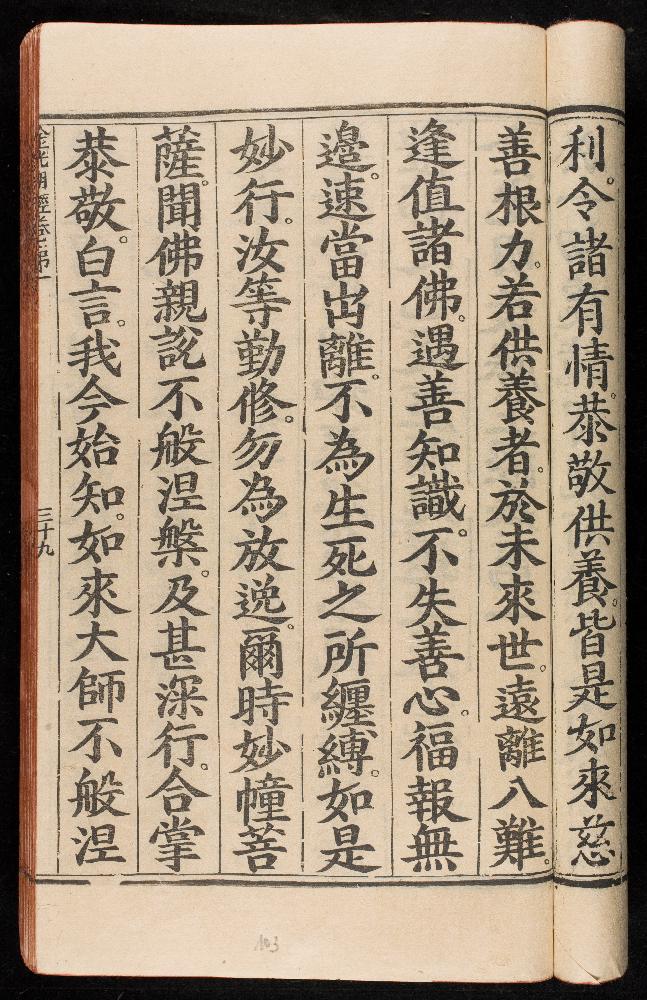 利。令諸有情。恭敬供養。皆是如來慈
善根力。若供養者。於未來世。遠離八難。
逢值諸佛。遇善知識。不失善心。福報無
邊。速當出離。不為生死之所纏縛。如是
妙行。汝等勤修。勿為放逸。爾時妙幢菩
薩。聞佛親說不般涅槃。及甚深行。合掌
恭敬。白言。我今始知。如來大師不般涅
金光明經卷第一
三十九
103